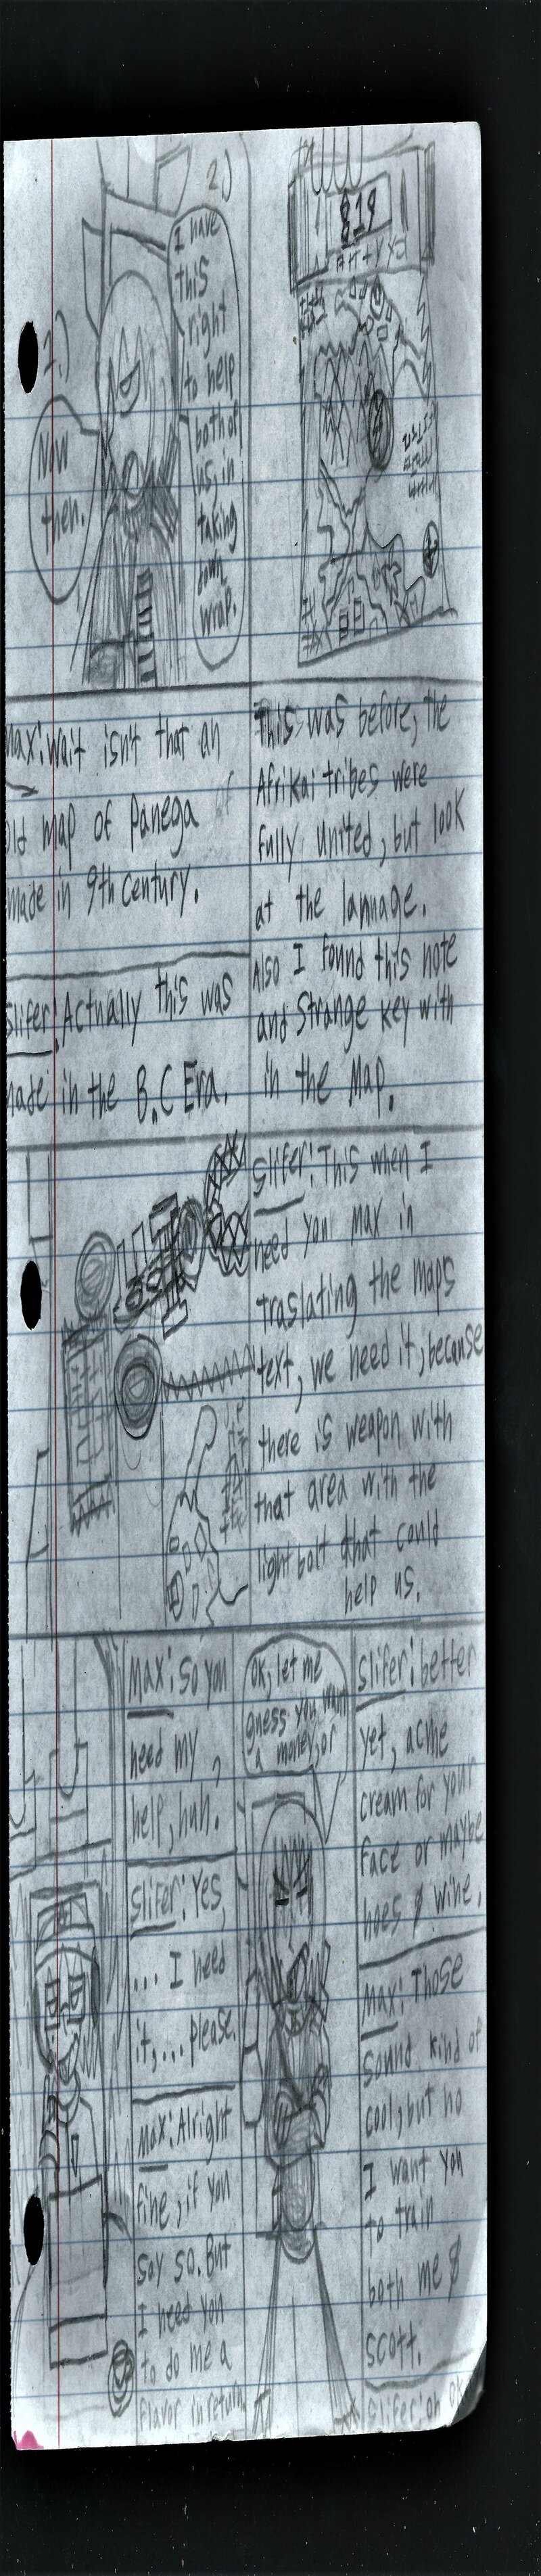 2)
I have
this
right
to help
both of
us, in
taking
down
wrap.
2.)
Now
then.
819
Max: wait isn't that an
old map of Panega of
made in 9th century.
Slifer: Actually this was
made in the B.C Era.
This was before, the
Afrikai tribes were
fully united, but look
at the lannage.
Also I found this note
and Strange key with
in the Map.
Slifer: This when I
need you max in
traslating the maps
text, we need it, because
there is weapon with
that area with the
light bolt that could
help us.
Max: so you
need my,
help, huh.
Slifer: Yes,
... I need
it,... please.
Max: Alright
fine, if you
say so. But
I need you
to do me a
flavor in return.
Ok, let me
guess you
a money, or
Slifer: better
yet, acme
cream for your
face or maybe
hoes & wine.
Max: Those
sound kind of
cool, but no
I want you
to train
both me &
scott.
Slifer: oh ok